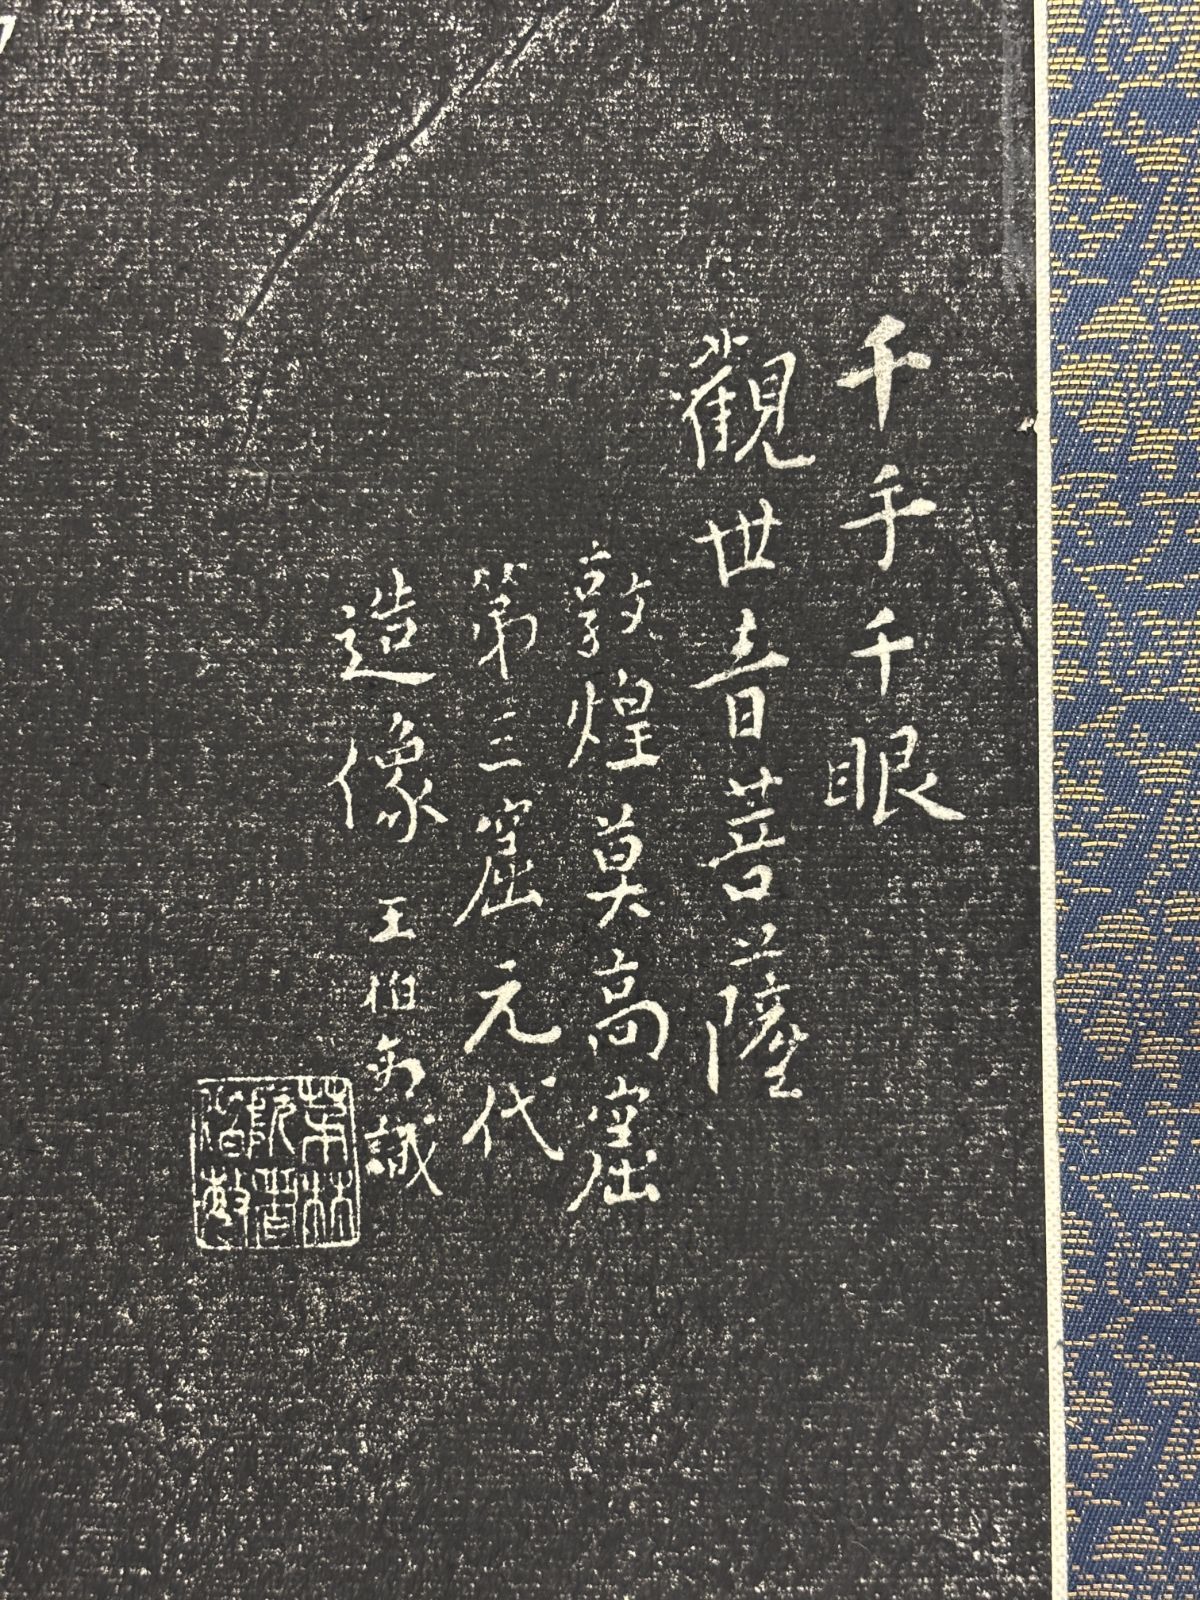 千手千眼
觀世音菩薩
敦煌莫高窟
第三窟元代
造像 王伯敏識